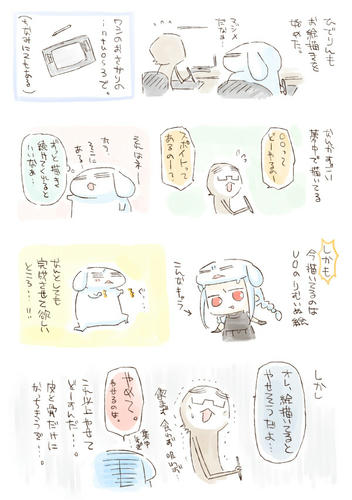 ひでりんも
お絵描きを
始めた。
マジメ
だなぁ…
ワシのおさがりの
intuos3で。
なんかすごい
集中で描いてる
○○って
どーやるのー
スポイトって
あるのーー？
それはねー
そこに
ある
ずっと描き
続けてくれると
いいなぁ…
しかも
今描いてるのは
UOのりむいぬ絵
こんなキャラ
なんとしても
完成させて欲しい
ところ…!!
しかし
オレ、絵描いてると
やせそうだよ…
飲まず
食わず
吸いず
やめて。
やせるのは。
集中
しすぎ
これ以上やせて
どーすんだ…！
皮と骨だけに
なっちゃうぞ…！